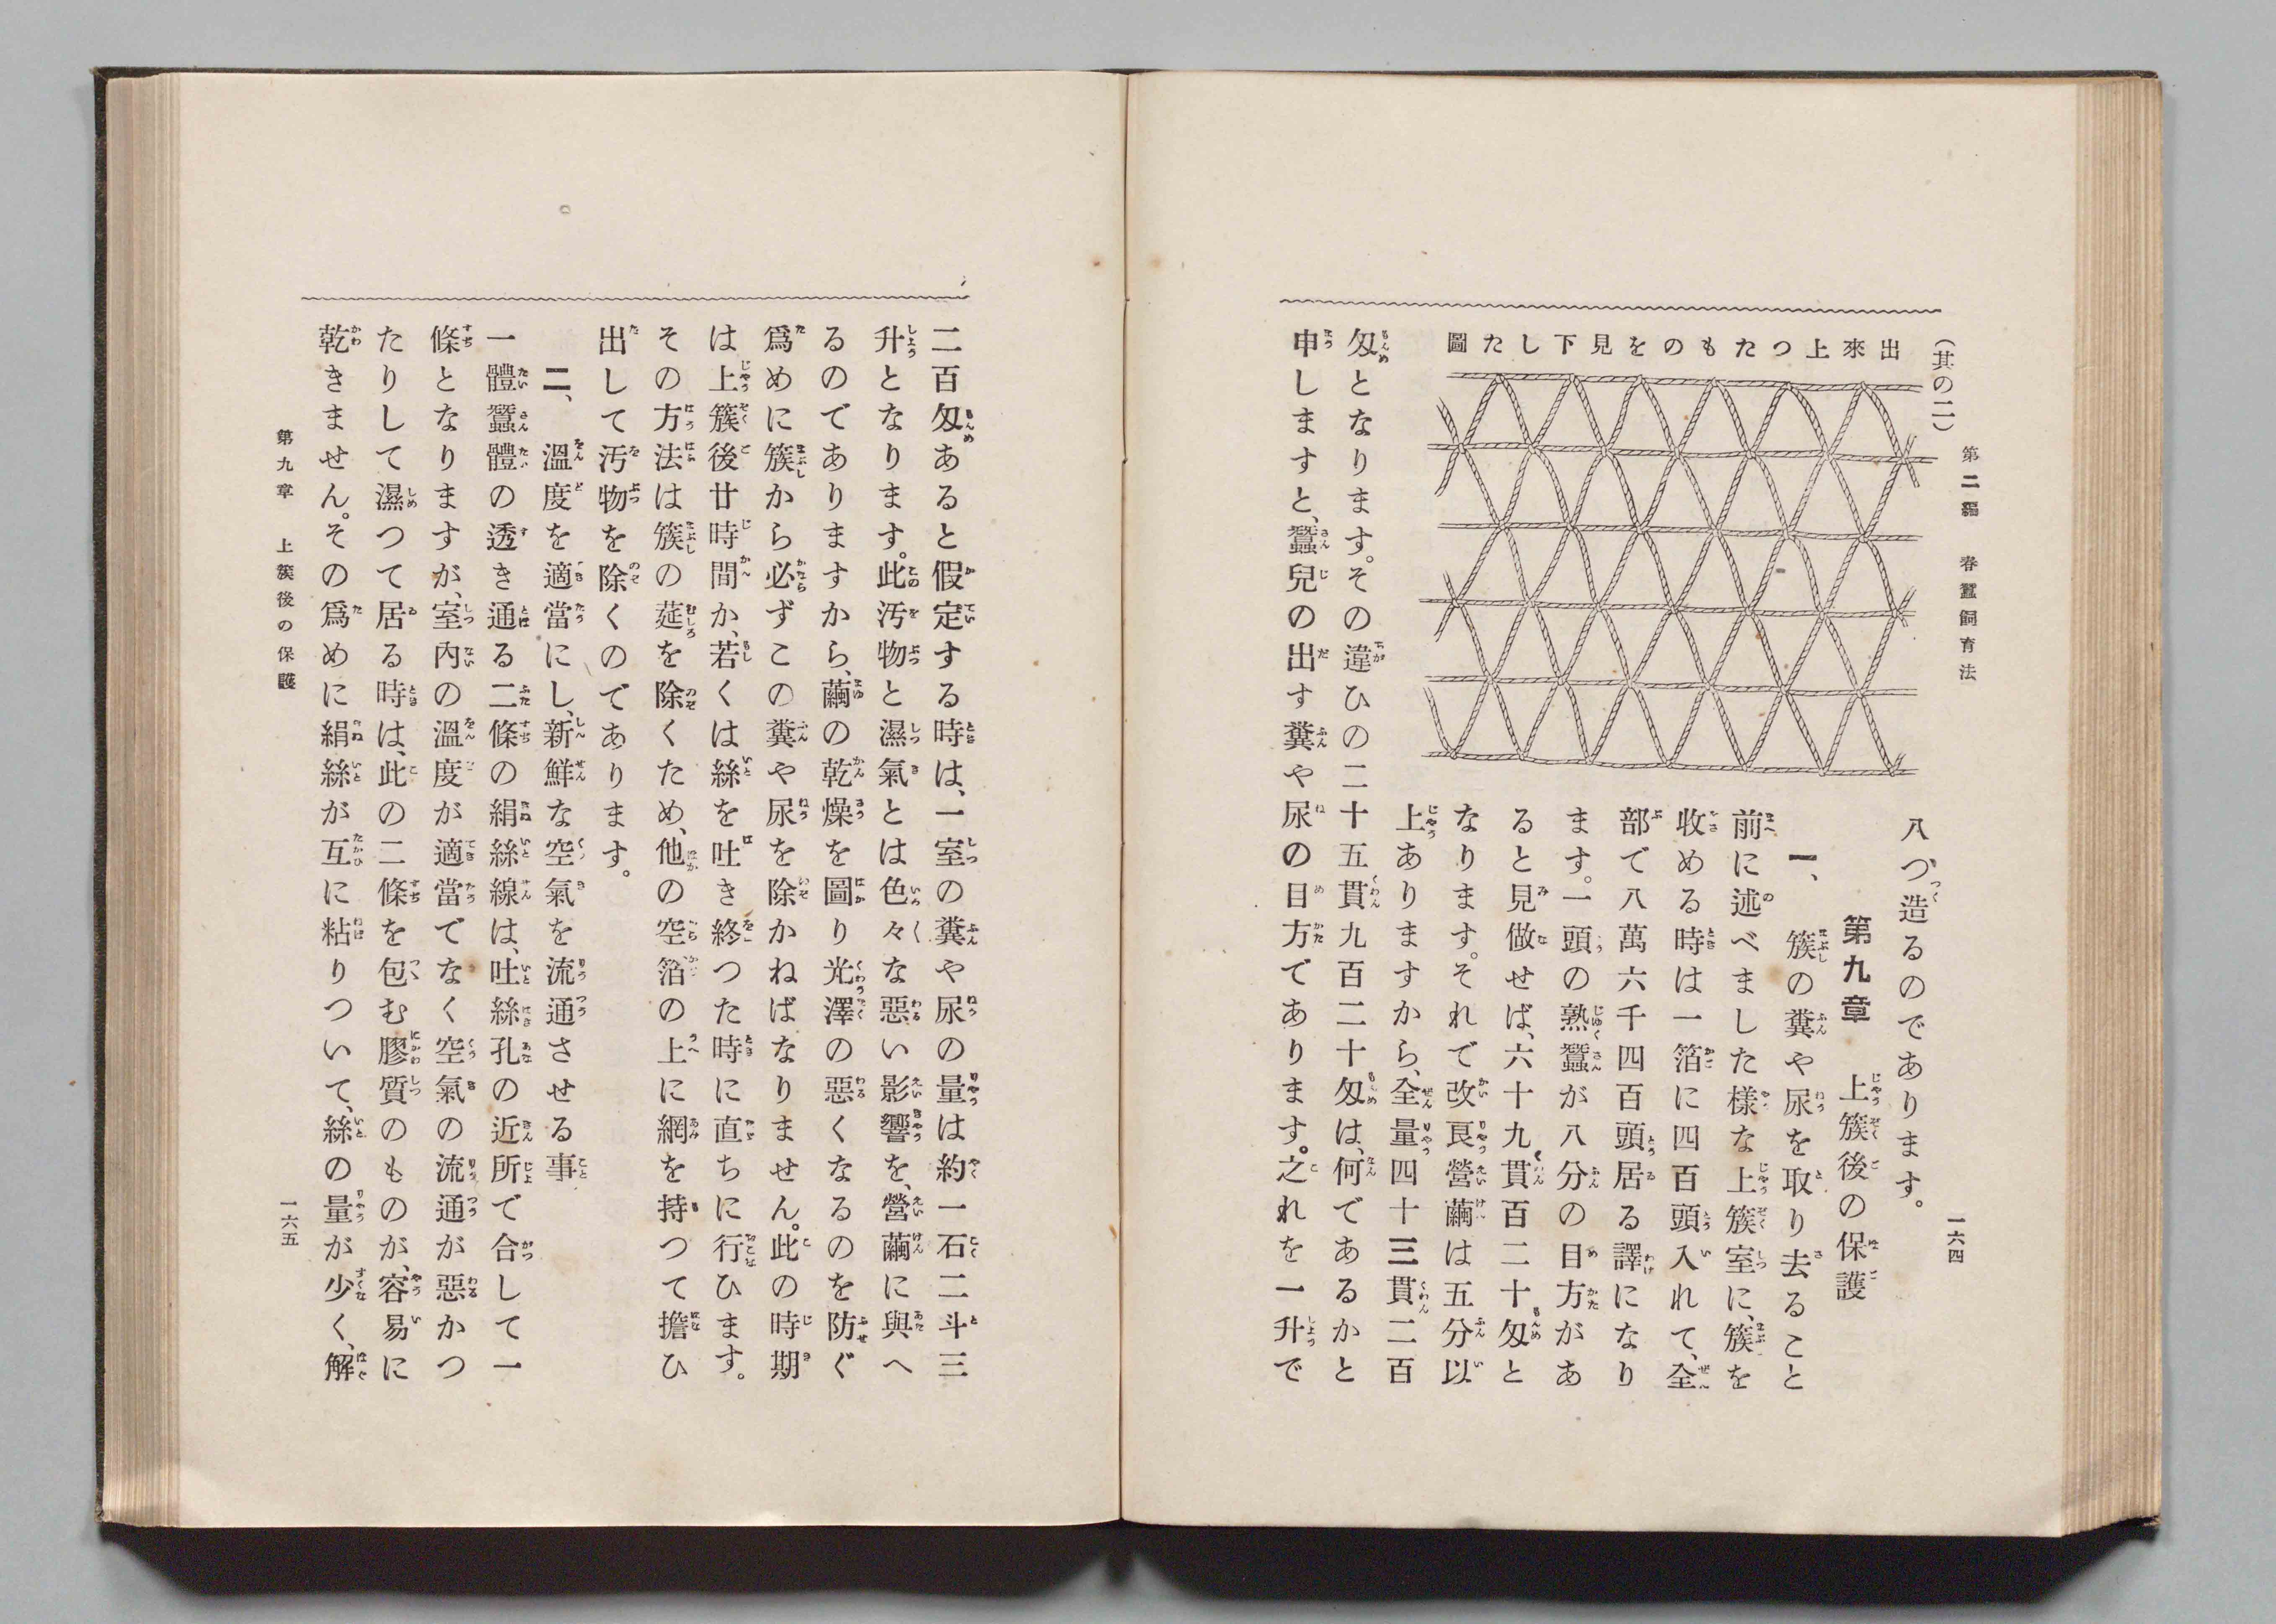 第二編 春蠶飼育法
一六四
(其の二)
出來上つたものを見下した圖
八つ造るのであります。
第九章 上簇後の保護
一、簇の糞や尿を取り去ること
前に述べました様な上簇室に、簇を
收める時は一箔に四百頭入れて、全
部で八萬六千四百頭居る譯になり
ます。一頭の熟蠶が八分の目方があ
ると見做せば、六十九貫百二十匁と
なります。それで改良營繭は五分以
上ありますから、全量四十三貫二百
匁となります。その違ひの二十五貫九百二十匁は、何であるかと
申しますと、蠶兒の出す糞や尿の目方であります。之れを一升で
二百匁あると假定する時は、一室の糞や尿の量は約一石二斗三
升となります。此汚物と濕氣とは色々な惡い影響を、營繭に與へ
るのでありますから、繭の乾燥を圖り光澤の惡くなるのを防ぐ
爲めに簇から必ずこの糞や尿を除かねばなりません。此の時期
は上簇後廿時間か、若くは絲を吐き終つた時に直ちに行ひます。
その方法は簇の莚を除くため、他の空箔の上に網を持つて擔ひ
出して汚物を除くのであります。
二、溫度を適當にし、新鮮な空氣を流通させる事
一體蠶體の透き通る二條の絹絲線は、吐絲孔の近所で合して一
條となりますが、室內の溫度が適當でなく空氣の流通が惡かつ
たりして濕つて居る時は、此の二條を包む膠質のものが、容易に
乾きません。その爲めに絹絲が互に粘りついて、絲の量が少く、解
第九章 上簇後の保護
一六五